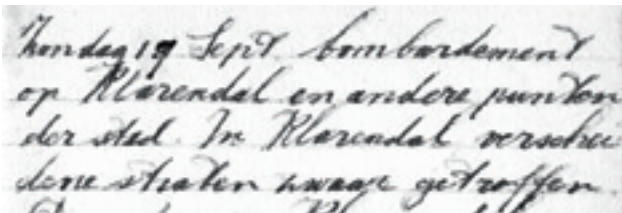 Zondag 17 Sept bombardement
op Klarendal en andere punten
der stad. In Klarendal verschei
dene straten zwaar getroffen.